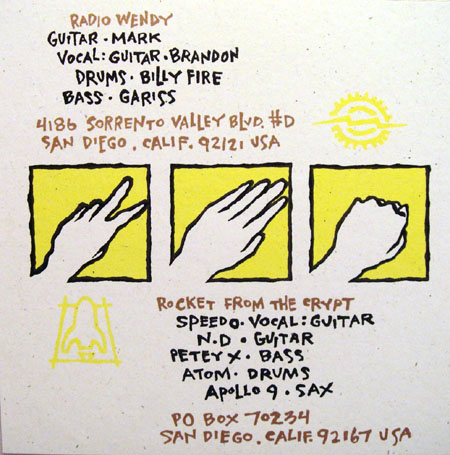 RADIO WENDY
GUITAR · MARK
VOCAL: GUITAR · BRANDON
DRUMS · BILLY FIRE
BASS · GARISS
4186 SORRENTO VALLEY BLVD. #D
SAN DIEGO, CALIF. 92121 USA
ROCKET FROM THE CRYPT
SPEEDO · VOCAL: GUITAR
N.D · GUITAR
PETEY X · BASS
ATOM · DRUMS
APOLLO 9 · SAX
PO BOX 70234
SAN DIEGO, CALIF. 92167 USA